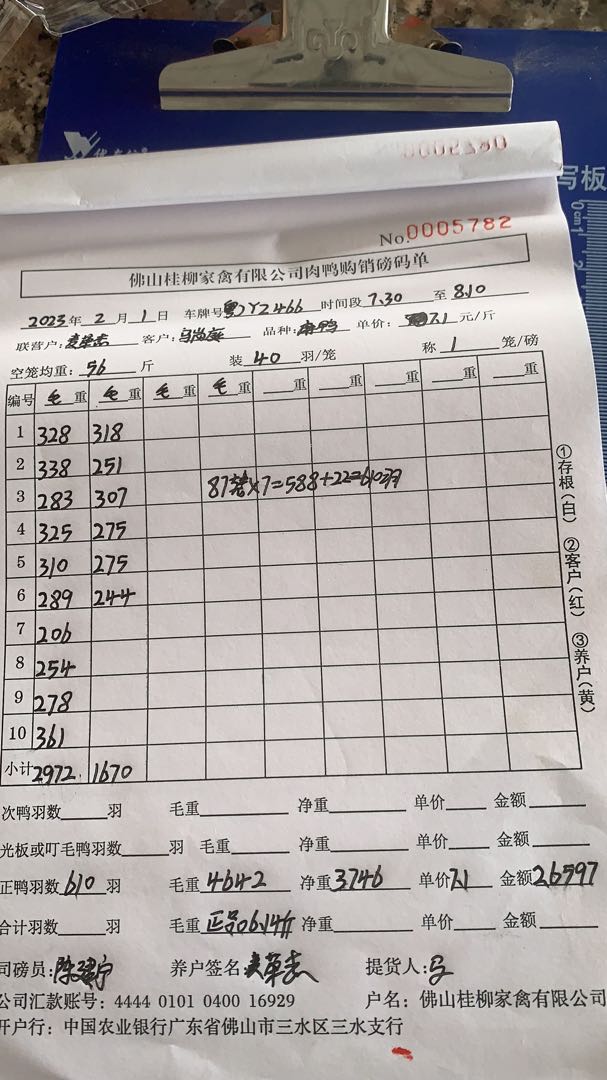 0002380
写板
No.0005782
佛山桂柳家禽有限公司肉鸭购销磅码单
2023年 2 月 1 日 车牌号 粤JY2466 时间段 7.30 至 8.10
联营户: 客户: 品种: 麻鸭 单价: 7.1 元/斤
空笼均重: 56 斤 装 40 羽/笼 称 1 笼/磅
编号 毛重 毛重 毛重 毛重 重 重 重 重
1 328 318
2 338 251
3 283 307 87 ×7=588+22=610羽
4 325 275
5 310 275
6 289 244
7 206
8 254
9 278
10 361
小计 2972 1670
①存根(白) ②客户(红) ③养户(黄)
次鸭羽数 羽 毛重 净重 单价 金额
光板或叮毛鸭羽数 羽 毛重 净重 单价 金额
正鸭羽数 610 羽 毛重 4642 净重 3746 单价 7.1 金额 26597
合计羽数 羽 毛重 正品6.14斤 净重 单价 金额
司磅员: 养户签名 提货人: 马
公司汇款账号: 4444 0101 0400 16929 户名: 佛山桂柳家禽有限公司
开户行: 中国农业银行广东省佛山市三水区三水支行